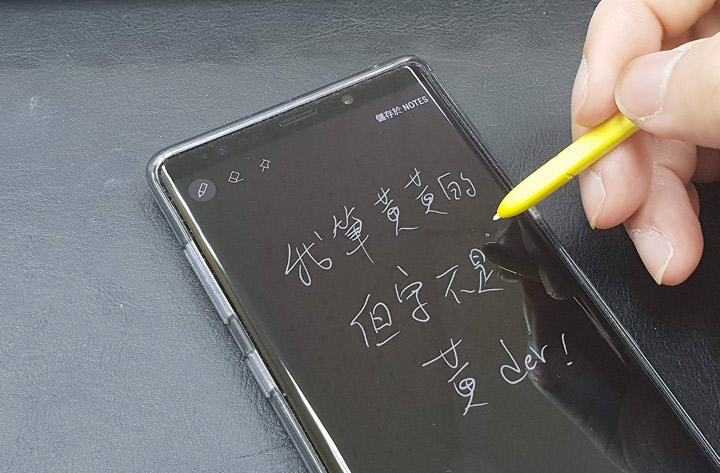 儲存於 NOTES
我筆黃黃的
但字不是
黃 der!